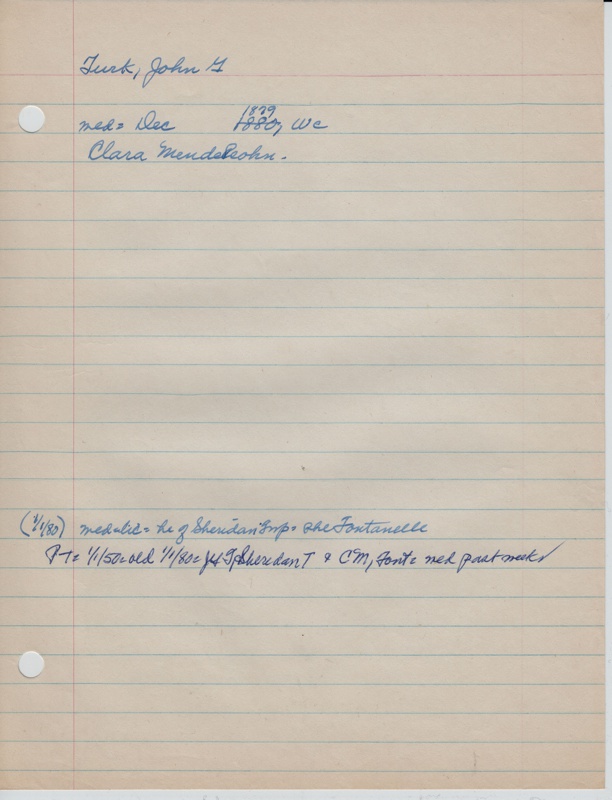 Turk, John G
1879
med= Dec 1880, Wc
Clara Mendelsohn.
(1/1/80) med=lic= he of Sheridan Twp= she Fontanelle
PT= 1/1/50=old 1/1/80= Sheridan T & CM, Font= med past week ✓